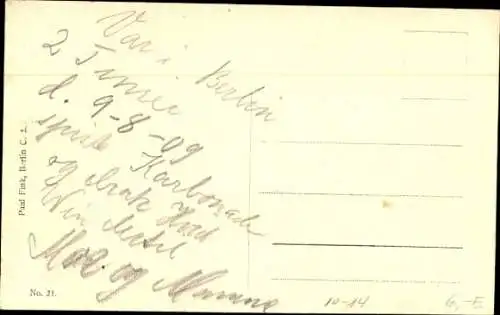 Var i Berlin
2 Timer
d. 9-8-09
spiste Karbonade
og drak Hvid
Vin
Moe og Mamma
Paul Fink, Berlin C. 2.
No. 21.
10-14
6,-E